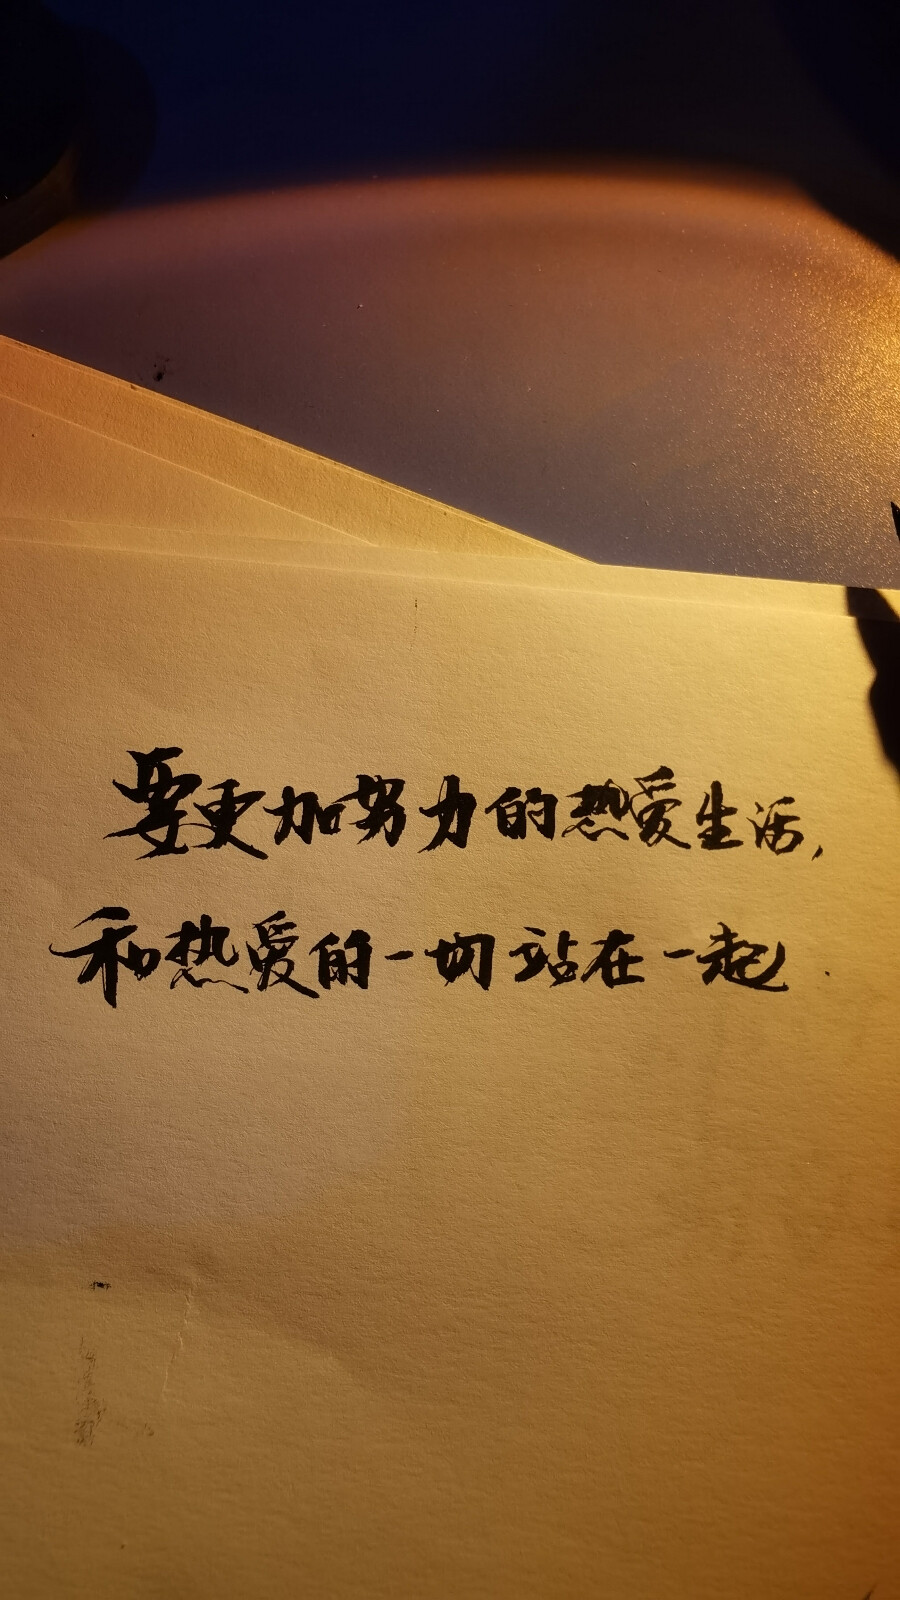 要更加努力的热爱生活,
和热爱的一切站在一起.